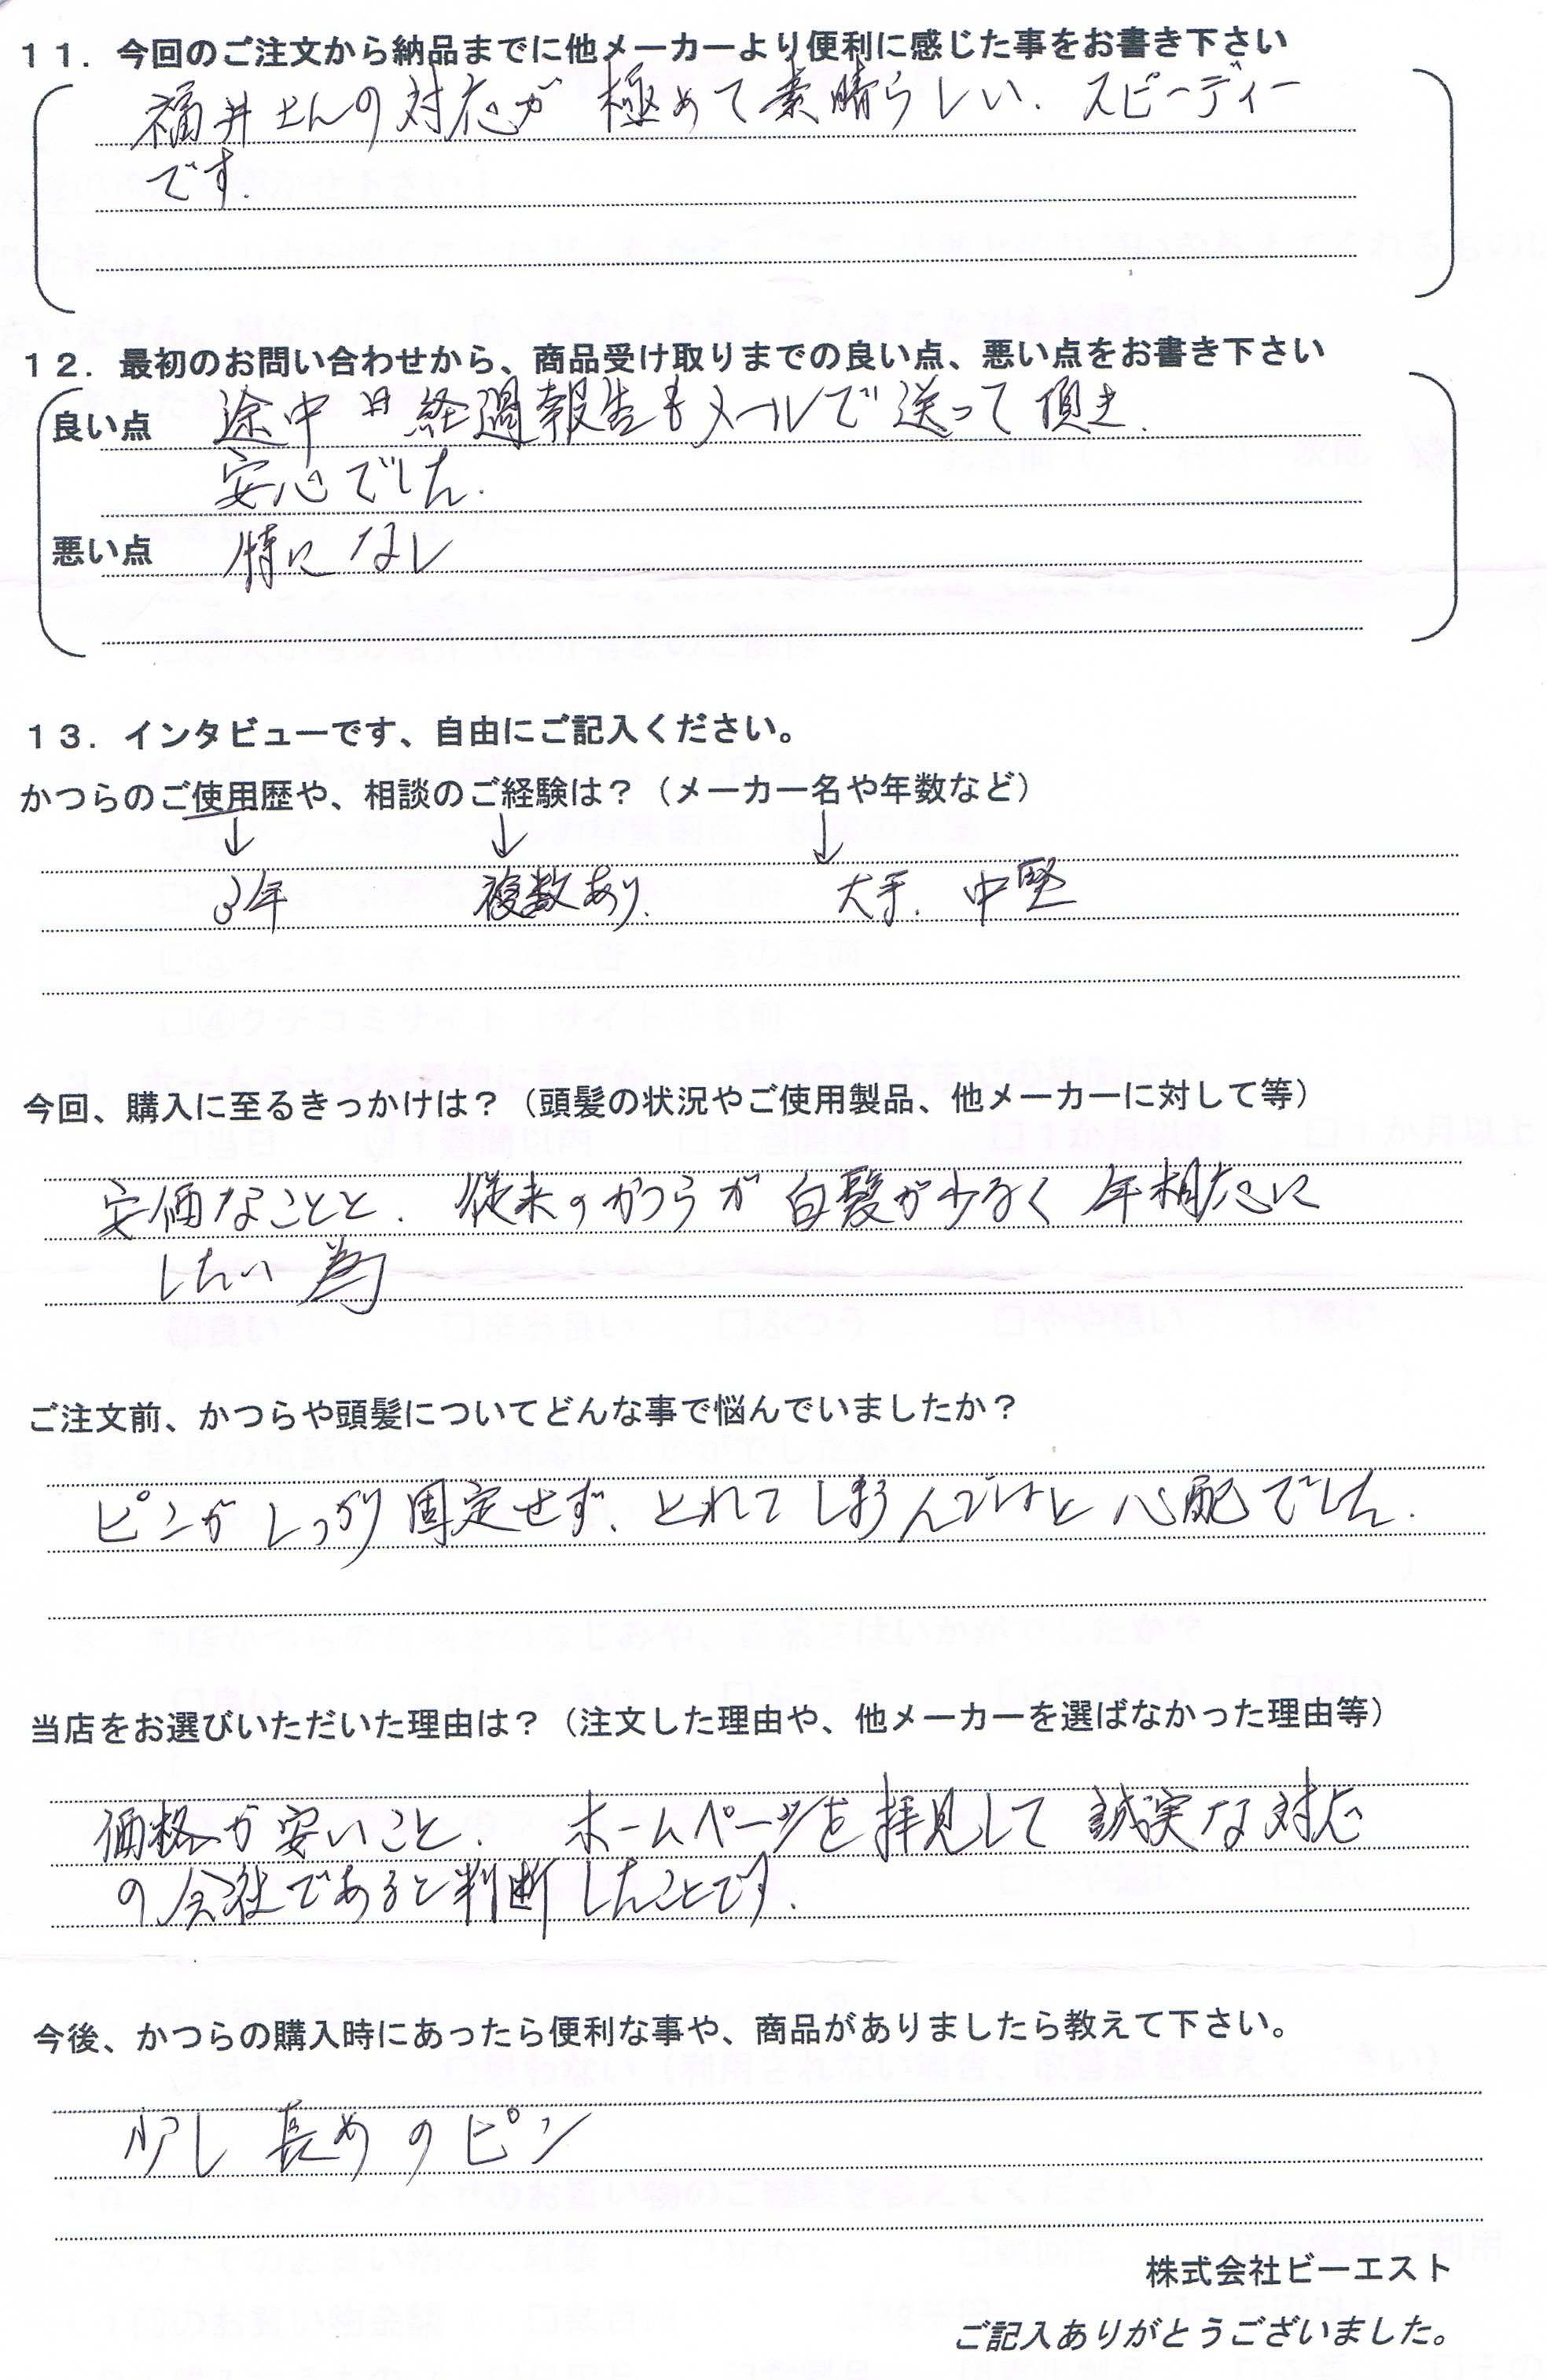 11．今回のご注文から納品までに他メーカーより便利に感じた事をお書き下さい
福井さんの対応が極めて素晴らしい．スピーディー
です．
12．最初のお問い合わせから、商品受け取りまでの良い点、悪い点をお書き下さい
良い点 途中 経過報告もメールで送って頂き．
安心でした．
悪い点 特になし
13．インタビューです、自由にご記入ください。
かつらのご使用歴や、相談のご経験は？（メーカー名や年数など）
↓ ↓ ↓
3年 複数あり． 大手．中堅
今回、購入に至るきっかけは？（頭髪の状況やご使用製品、他メーカーに対して等）
安価なことと．従来のかつらが白髪が少なく年相応に
したい為
ご注文前、かつらや頭髪についてどんな事で悩んでいましたか？
ピンがしっかり固定せず、とれてしまうんではと心配でした．
当店をお選びいただいた理由は？（注文した理由や、他メーカーを選ばなかった理由等）
価格が安いこと．ホームページを拝見して誠実な対応
の会社であると判断したことです．
今後、かつらの購入時にあったら便利な事や、商品がありましたら教えて下さい。
少し長めのピン
株式会社ビーエスト
ご記入ありがとうございました。